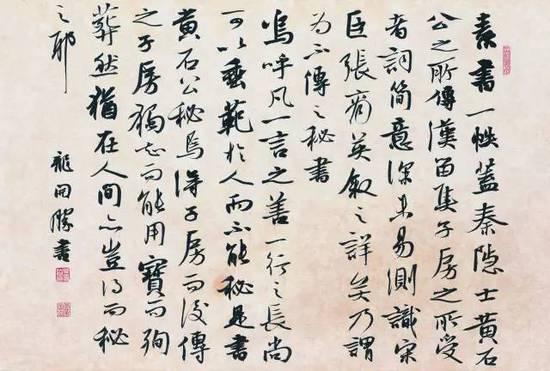 素書一帙蓋秦隐士黄石
公之所傳漢留侯子房之所受
者詞簡意深未易測識宋
臣張商英叙之詳矣乃謂
为不傳之秘書
嗚呼凡一言之善一行之長尚
可以垂範於人而不能秘是書
黄石公秘焉得子房而後傳
之子房獨知而能用寶而殉
葬然猶在人間亦豈得而秘
之耶
龍開勝書